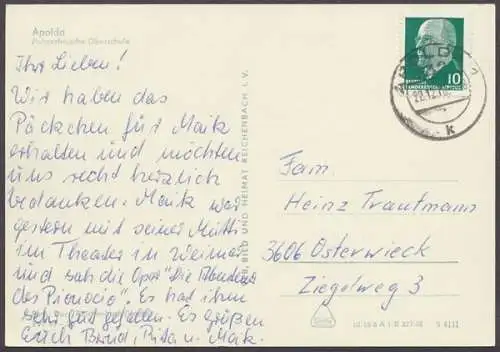 Apolda
Polytechnische Oberschule
Ihr Lieben!
Wir haben das
Päckchen für Maik
erhalten und möchten
uns recht herzlich
bedanken. Maik war
gestern mit seiner Mutti
im Theater in Weimar
und sah die Oper "Die Abenteuer
des Pinocio". Es hat ihm
sehr gut gefallen. Es grüßen
Erich Bernd, Rita u. Maik.
BILD UND HEIMAT REICHENBACH I. V.
10
Fam
Heinz Trautmann
3606 Osterwieck
Ziegelweg 3
k